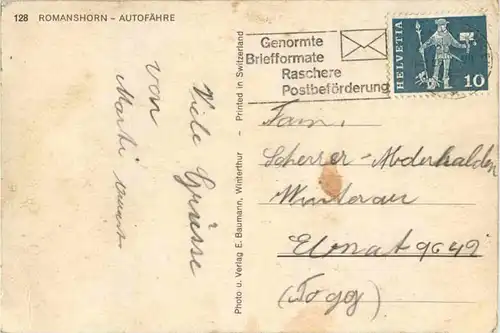 128 ROMANSHORN - AUTOFÄHRE
Viele Grüsse
von
Marti
Photo u. Verlag E. Baumann, Winterthur - Printed in Switzerland
Genormte
Briefformate
Raschere
Postbeförderung
HELVETIA
10
Fam.
Scherrer-Abderhalden
Winterau
Ebnat 9642
(Togg)